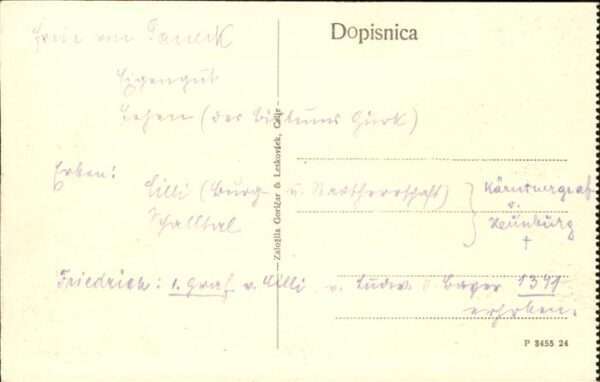 Dopisnica
Freie von Saneck
Eigengut
Lehen (des Bistums Gurk)
Erben:
Cilli (Burg u. Marktherrschaft)
Schalltal
Kärntnergraf
v.
Heunburg
†
Friedrich: 1. Graf v. Cilli v. Ludw. d. Bayer 1341
erhoben.
Založila Goričar & Leskovšek, Celje
P 8455 24